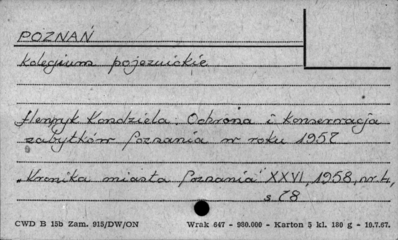 POZNAŃ
kolegium pojezuickie
Henryk Kondziela. Ochrona i konserwacja
zabytków Poznania w roku 1957
"Kronika miasta Poznania" XXVI, 1958, nr 4,
s. 78
CWD B 15b Zam. 915/DW/ON Wrak 647 - 980.000 - Karton 5 kl. 180 g - 10.7.67.